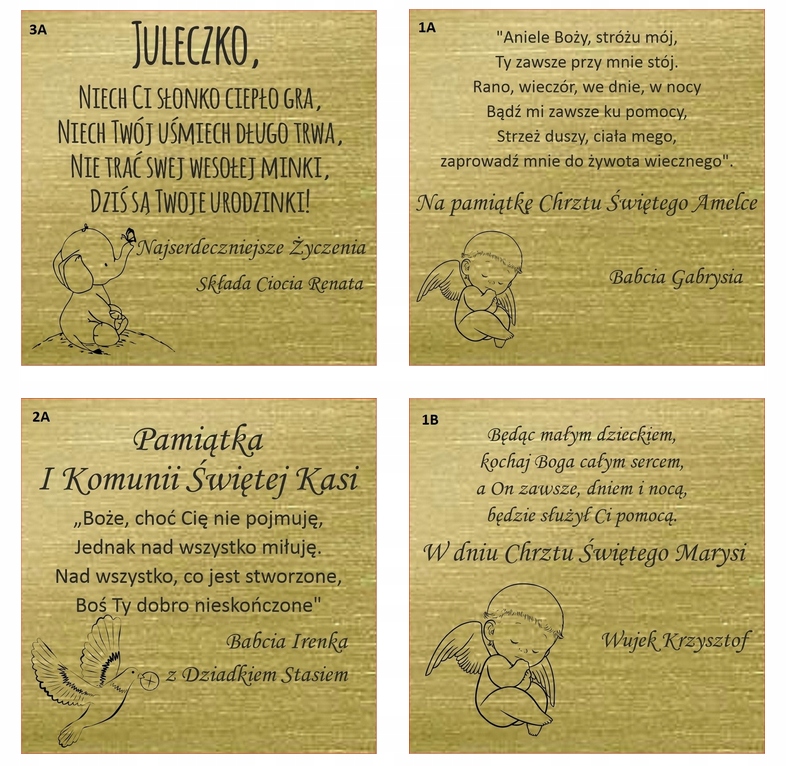 3A
JULECZKO,
NIECH CI SŁONKO CIEPŁO GRA,
NIECH TWÓJ UŚMIECH DŁUGO TRWA,
NIE TRAĆ SWEJ WESOŁEJ MINKI,
DZIŚ SĄ TWOJE URODZINKI!
Najserdeczniejsze Życzenia
Składa Ciocia Renata
1A
"Aniele Boży, stróżu mój,
Ty zawsze przy mnie stój.
Rano, wieczór, we dnie, w nocy
Bądź mi zawsze ku pomocy,
Strzeż duszy, ciała mego,
zaprowadź mnie do żywota wiecznego".
Na pamiątkę Chrztu Świętego Amelce
Babcia Gabrysia
2A
Pamiątka
I Komunii Świętej Kasi
„Boże, choć Cię nie pojmuję,
Jednak nad wszystko miłuję.
Nad wszystko, co jest stworzone,
Boś Ty dobro nieskończone"
Babcia Irenka
z Dziadkiem Stasiem
1B
Będąc małym dzieckiem,
kochaj Boga całym sercem,
a On zawsze, dniem i nocą,
będzie służył Ci pomocą.
W dniu Chrztu Świętego Marysi
Wujek Krzysztof